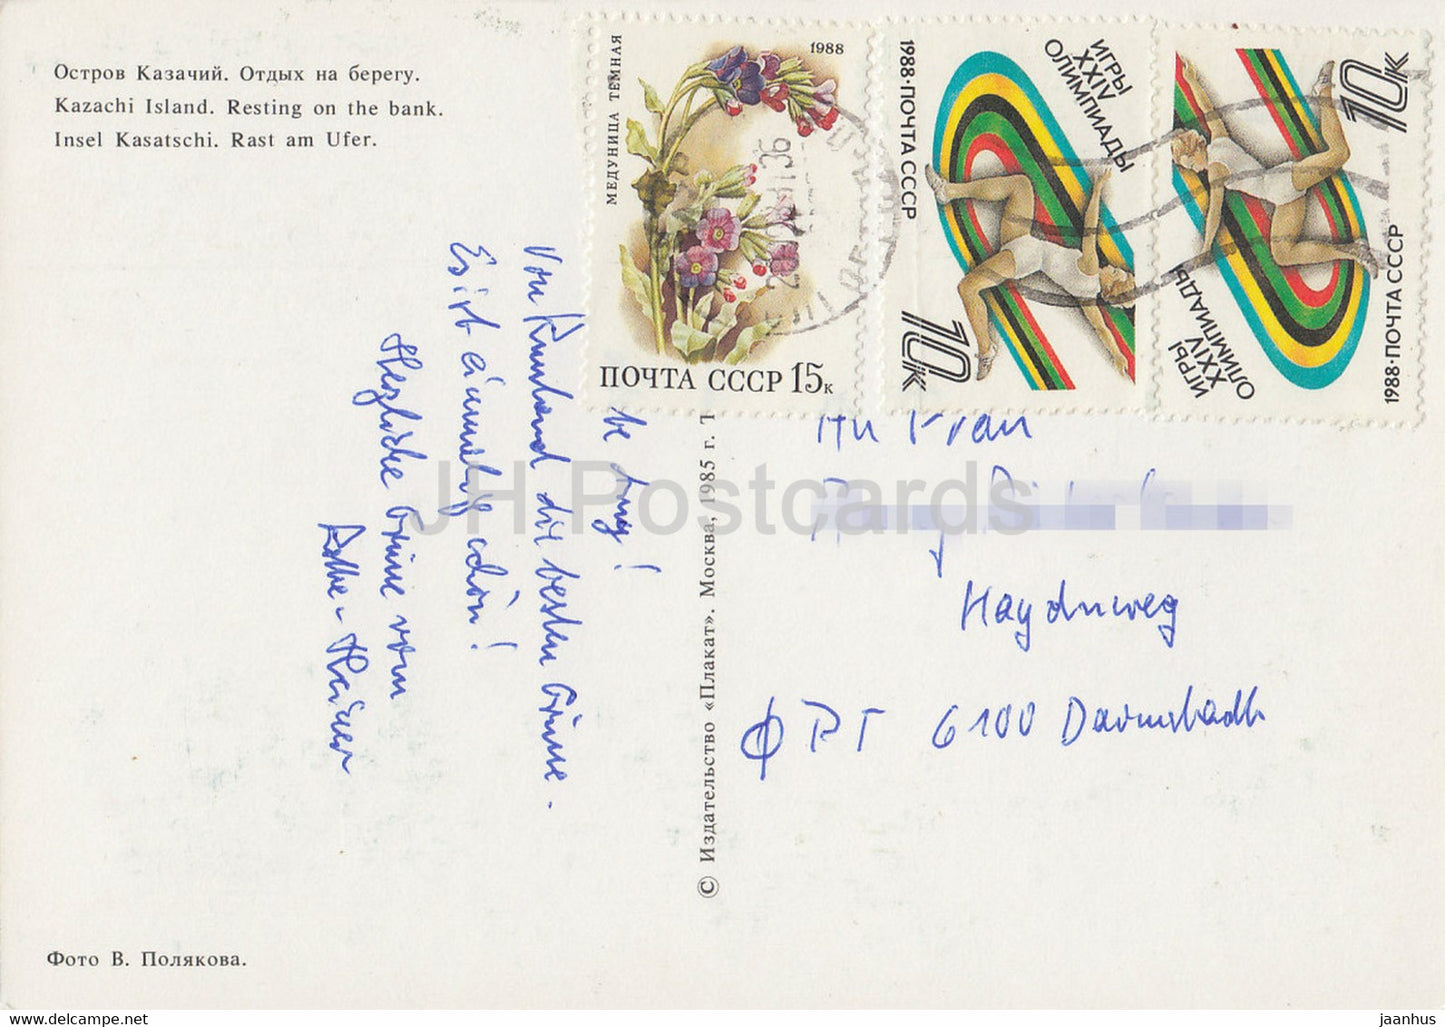 Остров Казачий. Отдых на берегу.
Kazachi Island. Resting on the bank.
Insel Kasatschi. Rast am Ufer.
МЕДУНИЦА ТЕМНАЯ
1988
ПОЧТА СССР 15к
1988·ПОЧТА СССР
ИГРЫ
XXIV
ОЛИМПИАДЫ
10к
1988·ПОЧТА СССР
ИГРЫ
XXIV
ОЛИМПИАДЫ
10к
be
Von Rußland die besten Grüße.
Es ist einmalig schön!
Herzliche Grüße vom
Rainer
© Издательство «Плакат». Москва, 1985 г.
An Frau
Haydnweg
6100 Darmstadt
Фото В. Полякова.
JH Postcards
www.delcampe.net
jaanhus